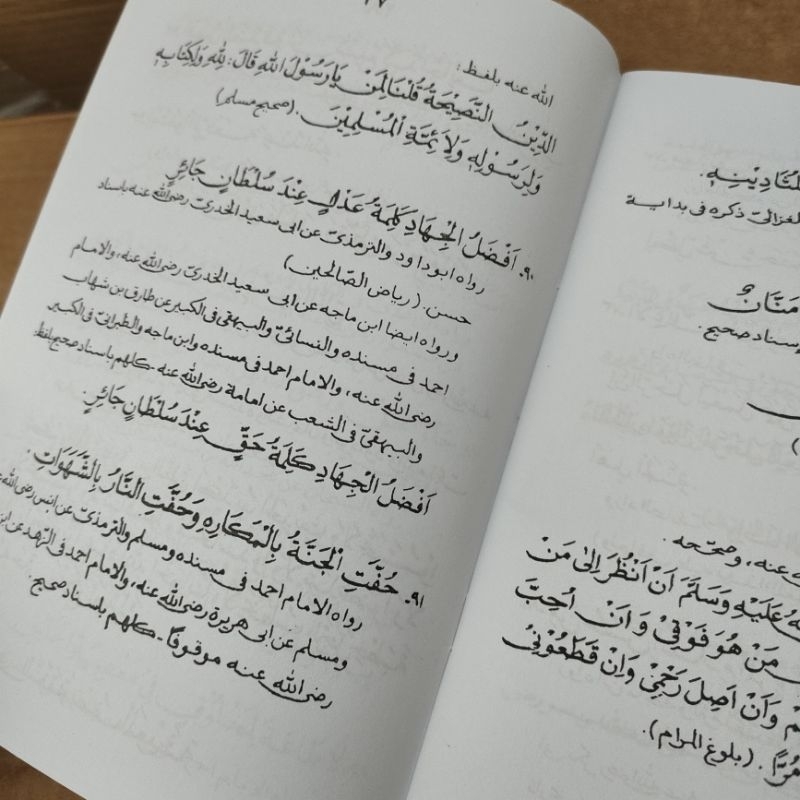 ٢٧
الله عنه بلفظ:
الدِّيْنُ النَّصِيْحَةُ قُلْنَا لِمَنْ يَارَسُوْلَ اللهِ قَالَ: لِلهِ وَلِكِتَابِهِ
وَلِرَسُوْلِهِ وَلِاَئِمَّةِ الْمُسْلِمِيْنَ. (صحيح مسلم)
٩٠. اَفْضَلُ الْجِهَادِ كَلِمَةُ عَدْلٍ عِنْدَ سُلْطَانٍ جَائِرٍ
رواه ابوداود والترمذىّ عن ابى سعيد الخدرىّ رضى الله عنه باسناد
حسن. (رياض الصّالحين)
ورواه ايضا ابن ماجه عن ابى سعيد الخدرىّ رضى الله عنه، والامام
احمد فى مسنده والنسائىّ والبيهقى فى الكبير عن طارق بن شهاب
رضى الله عنه، والامام احمد فى مسنده وابن ماجه والطبرانىّ فى الكبير
والبيهقىّ فى الشعب عن امامة رضى الله عنه - كلهم باسناد صحيح بلفظ
اَفْضَلُ الْجِهَادِ كَلِمَةُ حَقٍّ عِنْدَ سُلْطَانٍ جَائِرٍ.
٩١. حُفَّتِ الْجَنَّةُ بِالْمَكَارِهِ وَحُفَّتِ النَّارُ بِالشَّهَوَاتِ.
رواه الامام احمد فى مسنده ومسلم والترمذىّ عن انس رضى الله
ومسلم عن ابى هريرة رضى الله عنه، والامام احمد فى الزهد عن
رضى الله عنه موقوفًا - كلهم باسناد صحيح.
ذكره فى بداية
مَنَّانٌ
اسناد صحيح.
عنه، وصحّحه.
عَلَيْهِ وَسَلَّمَ اَنْ اَنْظُرَ اِلىٰ مَنْ
مَنْ هُوَ فَوْقِيْ وَاَنْ اُحِبَّ
وَاَنْ اَصِلَ رَحِمِيْ وَاِنْ قَطَعُوْنِيْ
مُرًّا. (بلوغ المرام).